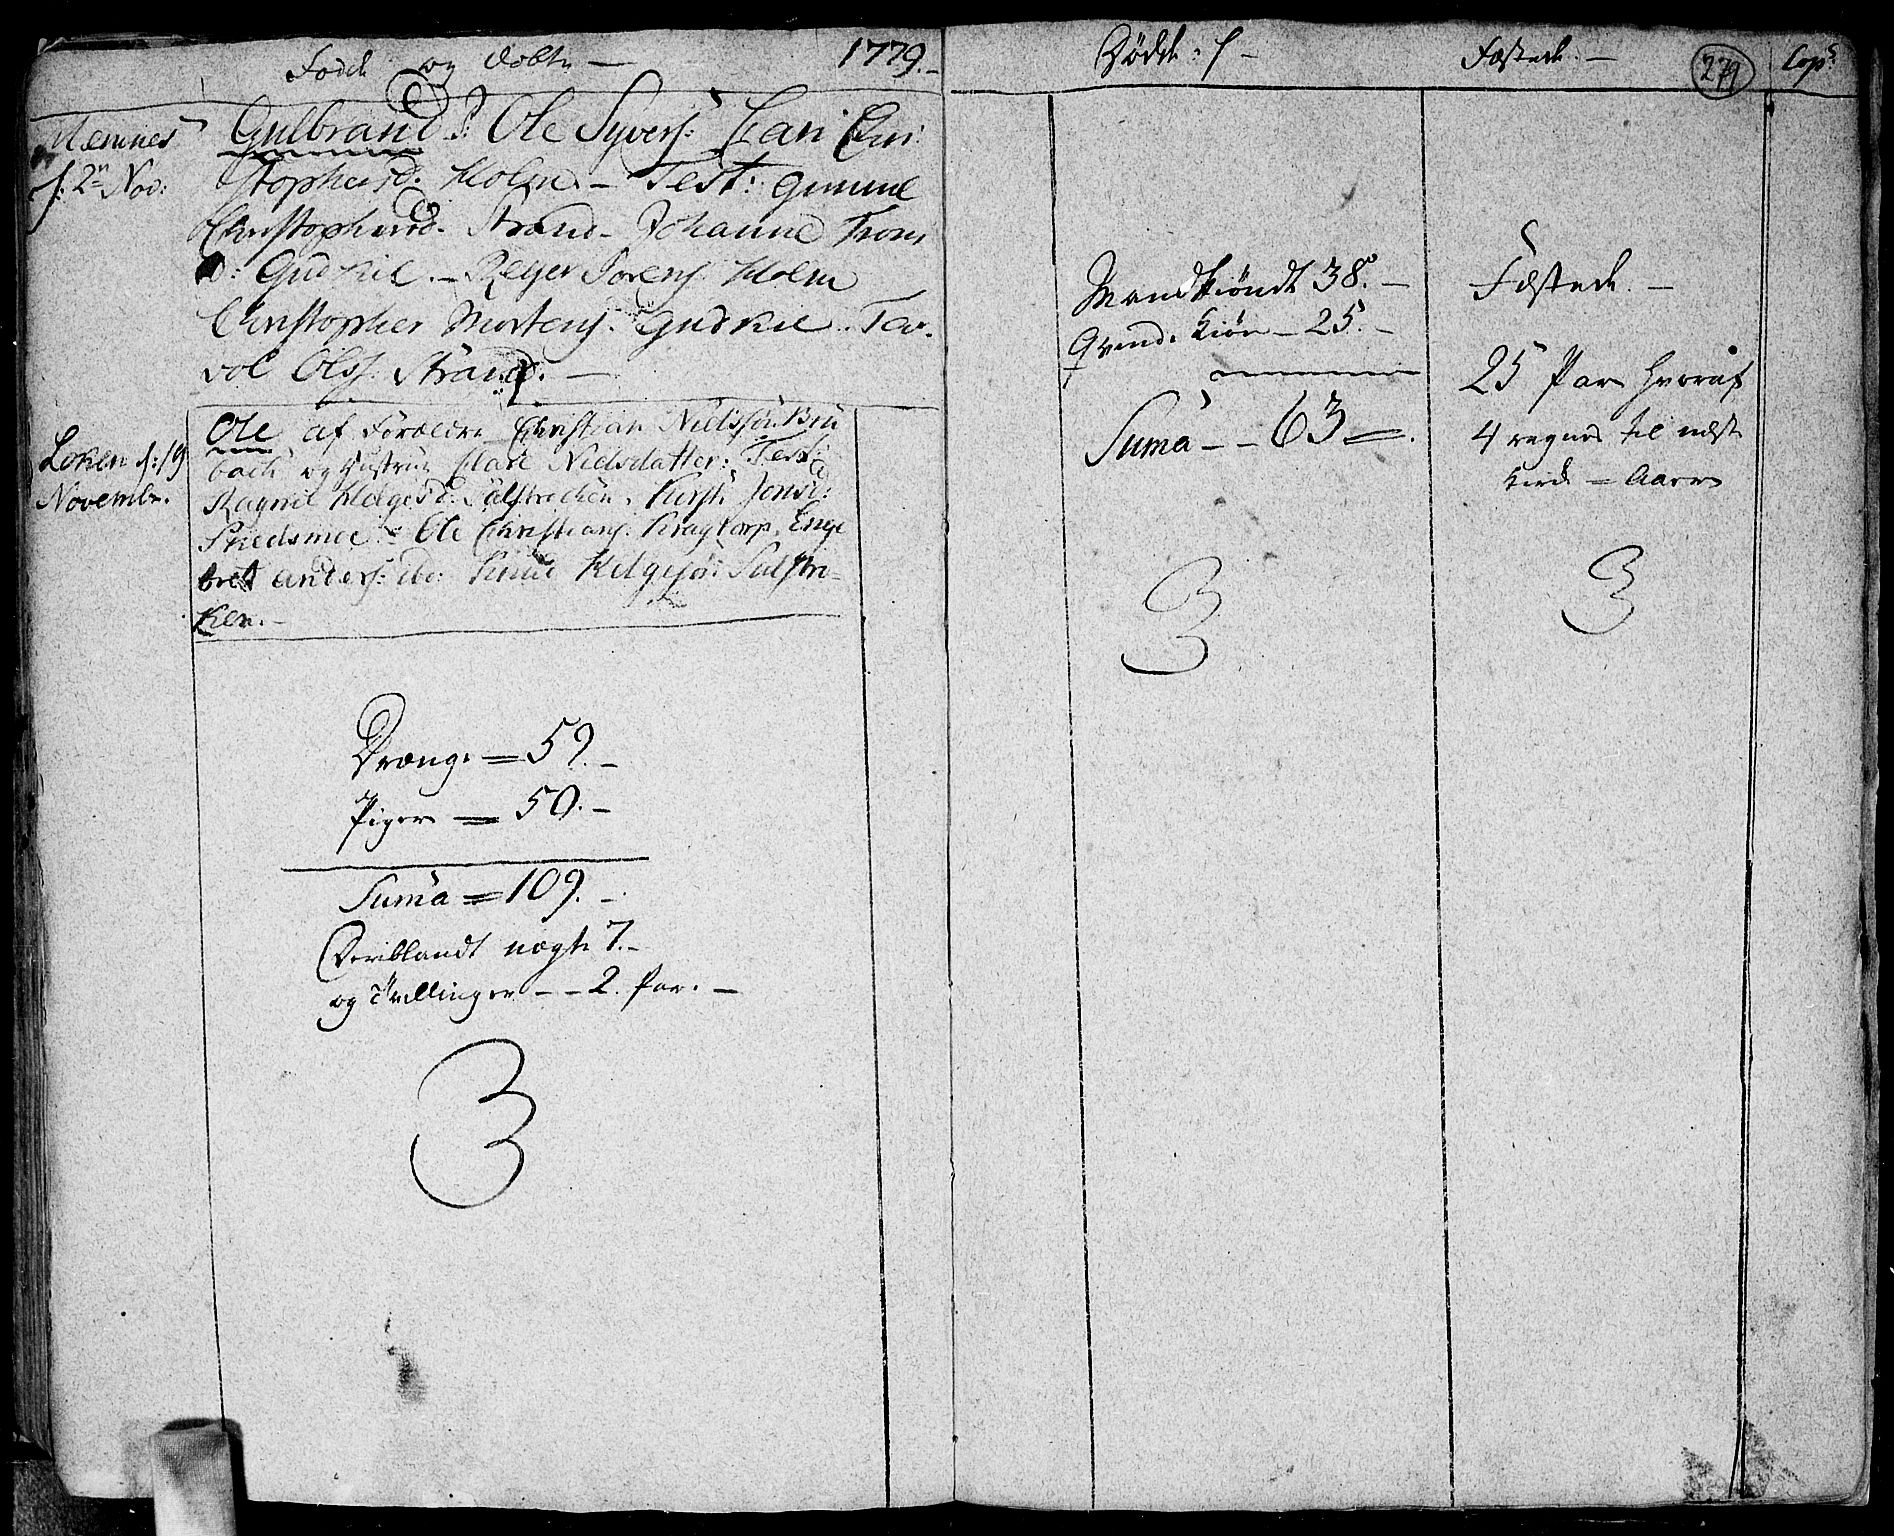 Fødde og døbte — 1779. —
Hemnes
f: 2n Nov:
Gulbrand F: Ole Syvers: Kari Chri
stophersd. Holm. — Test: Gunnil
Christophersd. Strand — Johanne Trons
d: Gudkil. — Reyer Sorens: Holm
Christopher Mortens: Gudkil. Tar
vol Olss: Strand. —
Løken f: 19
Novembr.
Ole af Forældre Christian Nielssøn Bru
bach og Hustrue Nielsdatter: Test:
Ragnil Helgesd: Sulstrechen, Kirsti Jonsd:
Skedsmoe = Ole Christians: Kragtorp. Enge
bret anders: ibd: Knud Helgesøn Sulstre-
ken. —
Drænge = 59. —
Piger = 50. —
Suma = 109. —
Deriblandt uægte 7. —
og Tvillinger — — 2. Par. —
3
Dødde: / —
Mandkiøndt 38. —
Qvind. kiøn — 25. —
Suma — — 63 =.
3
Fæstede. —
279
Cop:
Fæstede. —
25 Par hvoraf
4 regnes til næste
Kirke = Aar
3